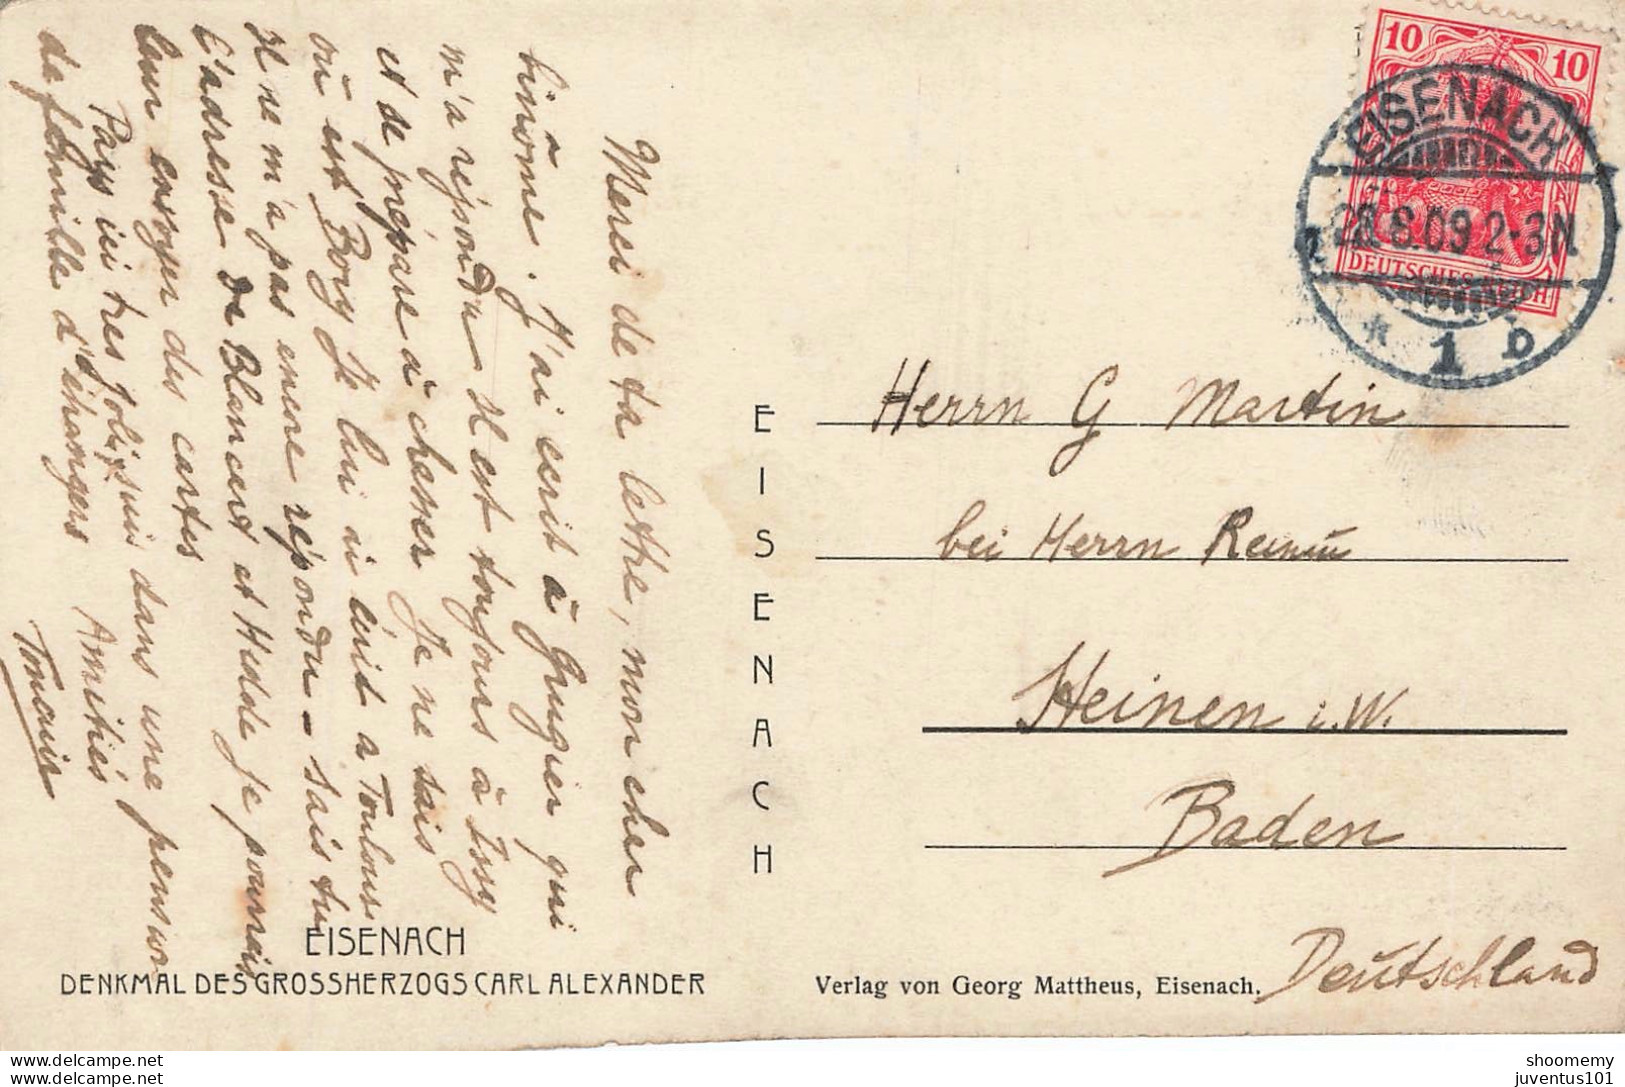 Merci de ta lettre, mon cher
binôme. J'ai écrit à Grugier qui
m'a répondu Il est toujours à Issy
et se prépare à chesser Je ne sais
où est Bory Je lui ai écrit a Toulouse
Il ne m'a pas encore répondu - Sais tu
l'adresse de Blancard et Hudde Je pourrais
leur envoyer des cartes
Pays ici tres joli, suis dans une pension
de famille d'étrangers Amitiés
10 10
EISENACH
8.09 2-3N.
DEUTSCHES REICH
* 1 b
Herrn G Martin
bei Herrn
Heinen i. W.
Baden
Deutschland
EISENACH
EISENACH
DENKMAL DES GROSSHERZOGS CARL ALEXANDER
Verlag von Georg Mattheus, Eisenach.
shoomemy
juventus101